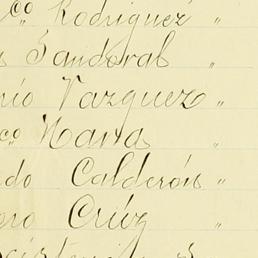 co Rodriguez "
Sandoval "
nio Vazquez "
co Nava "
do Calderón "
oro Crúz "